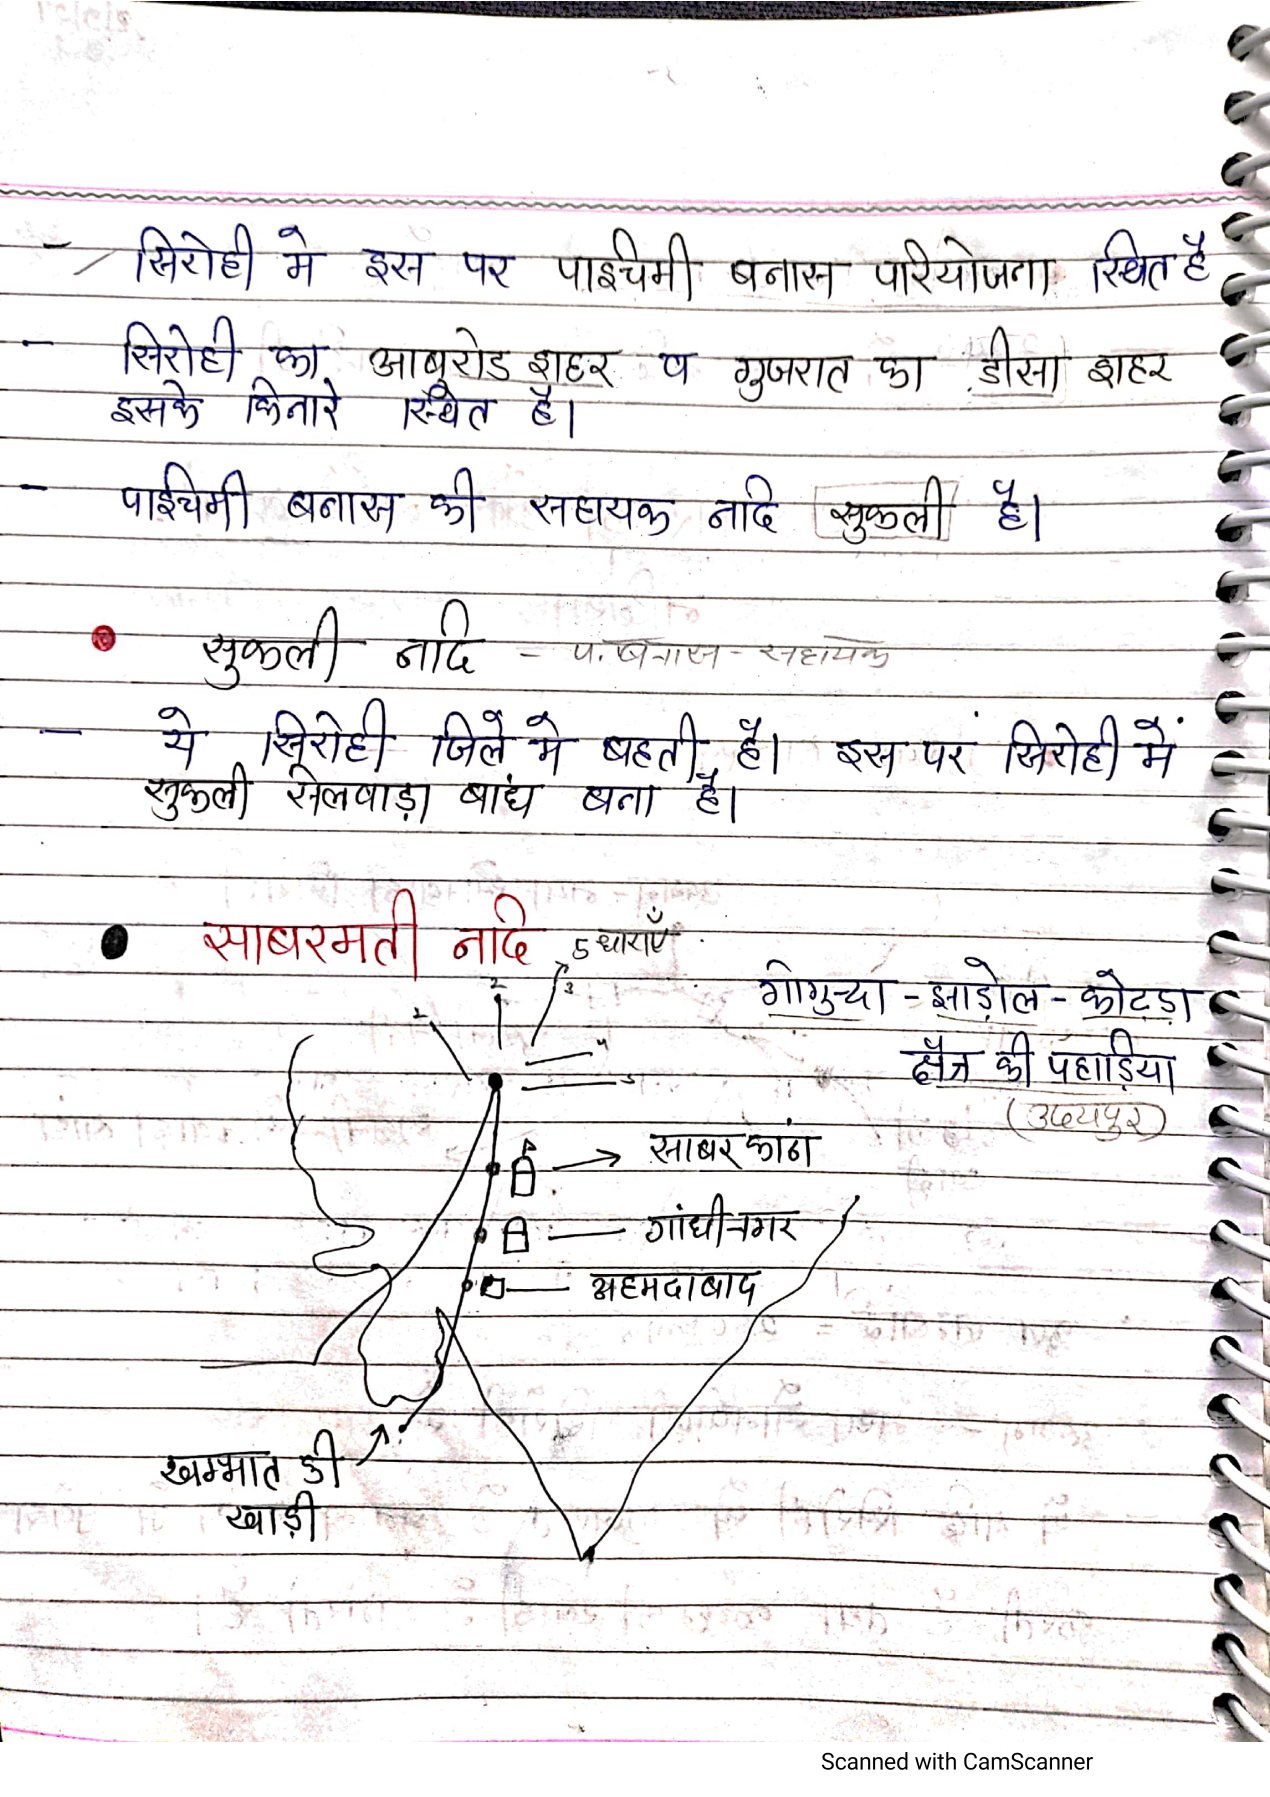 - सिरोही मे इस पर पाश्चिमी बनास परियोजना स्थित है
- सिरोही का आबूरोड शहर व गुजरात का डीसा शहर
इसके किनारे स्थित है।
- पाश्चिमी बनास की सहायक नदि सुकली है।
सुकली नदि - प. बनास - सहायक
- ये सिरोही जिले मे बहती है। इस पर सिरोही में
सुकली सेलवाड़ा बाध बना है।
साबरमती नदि
5 धाराएँ
गोगुन्दा - झाड़ोल - कोटड़ा
क्षेत्र की पहाड़िया
(उदयपुर)
1
2
3
4
5
→ साबर कांठा
गांधीनगर
अहमदाबाद
खम्भात की
खाड़ी
Scanned with CamScanner